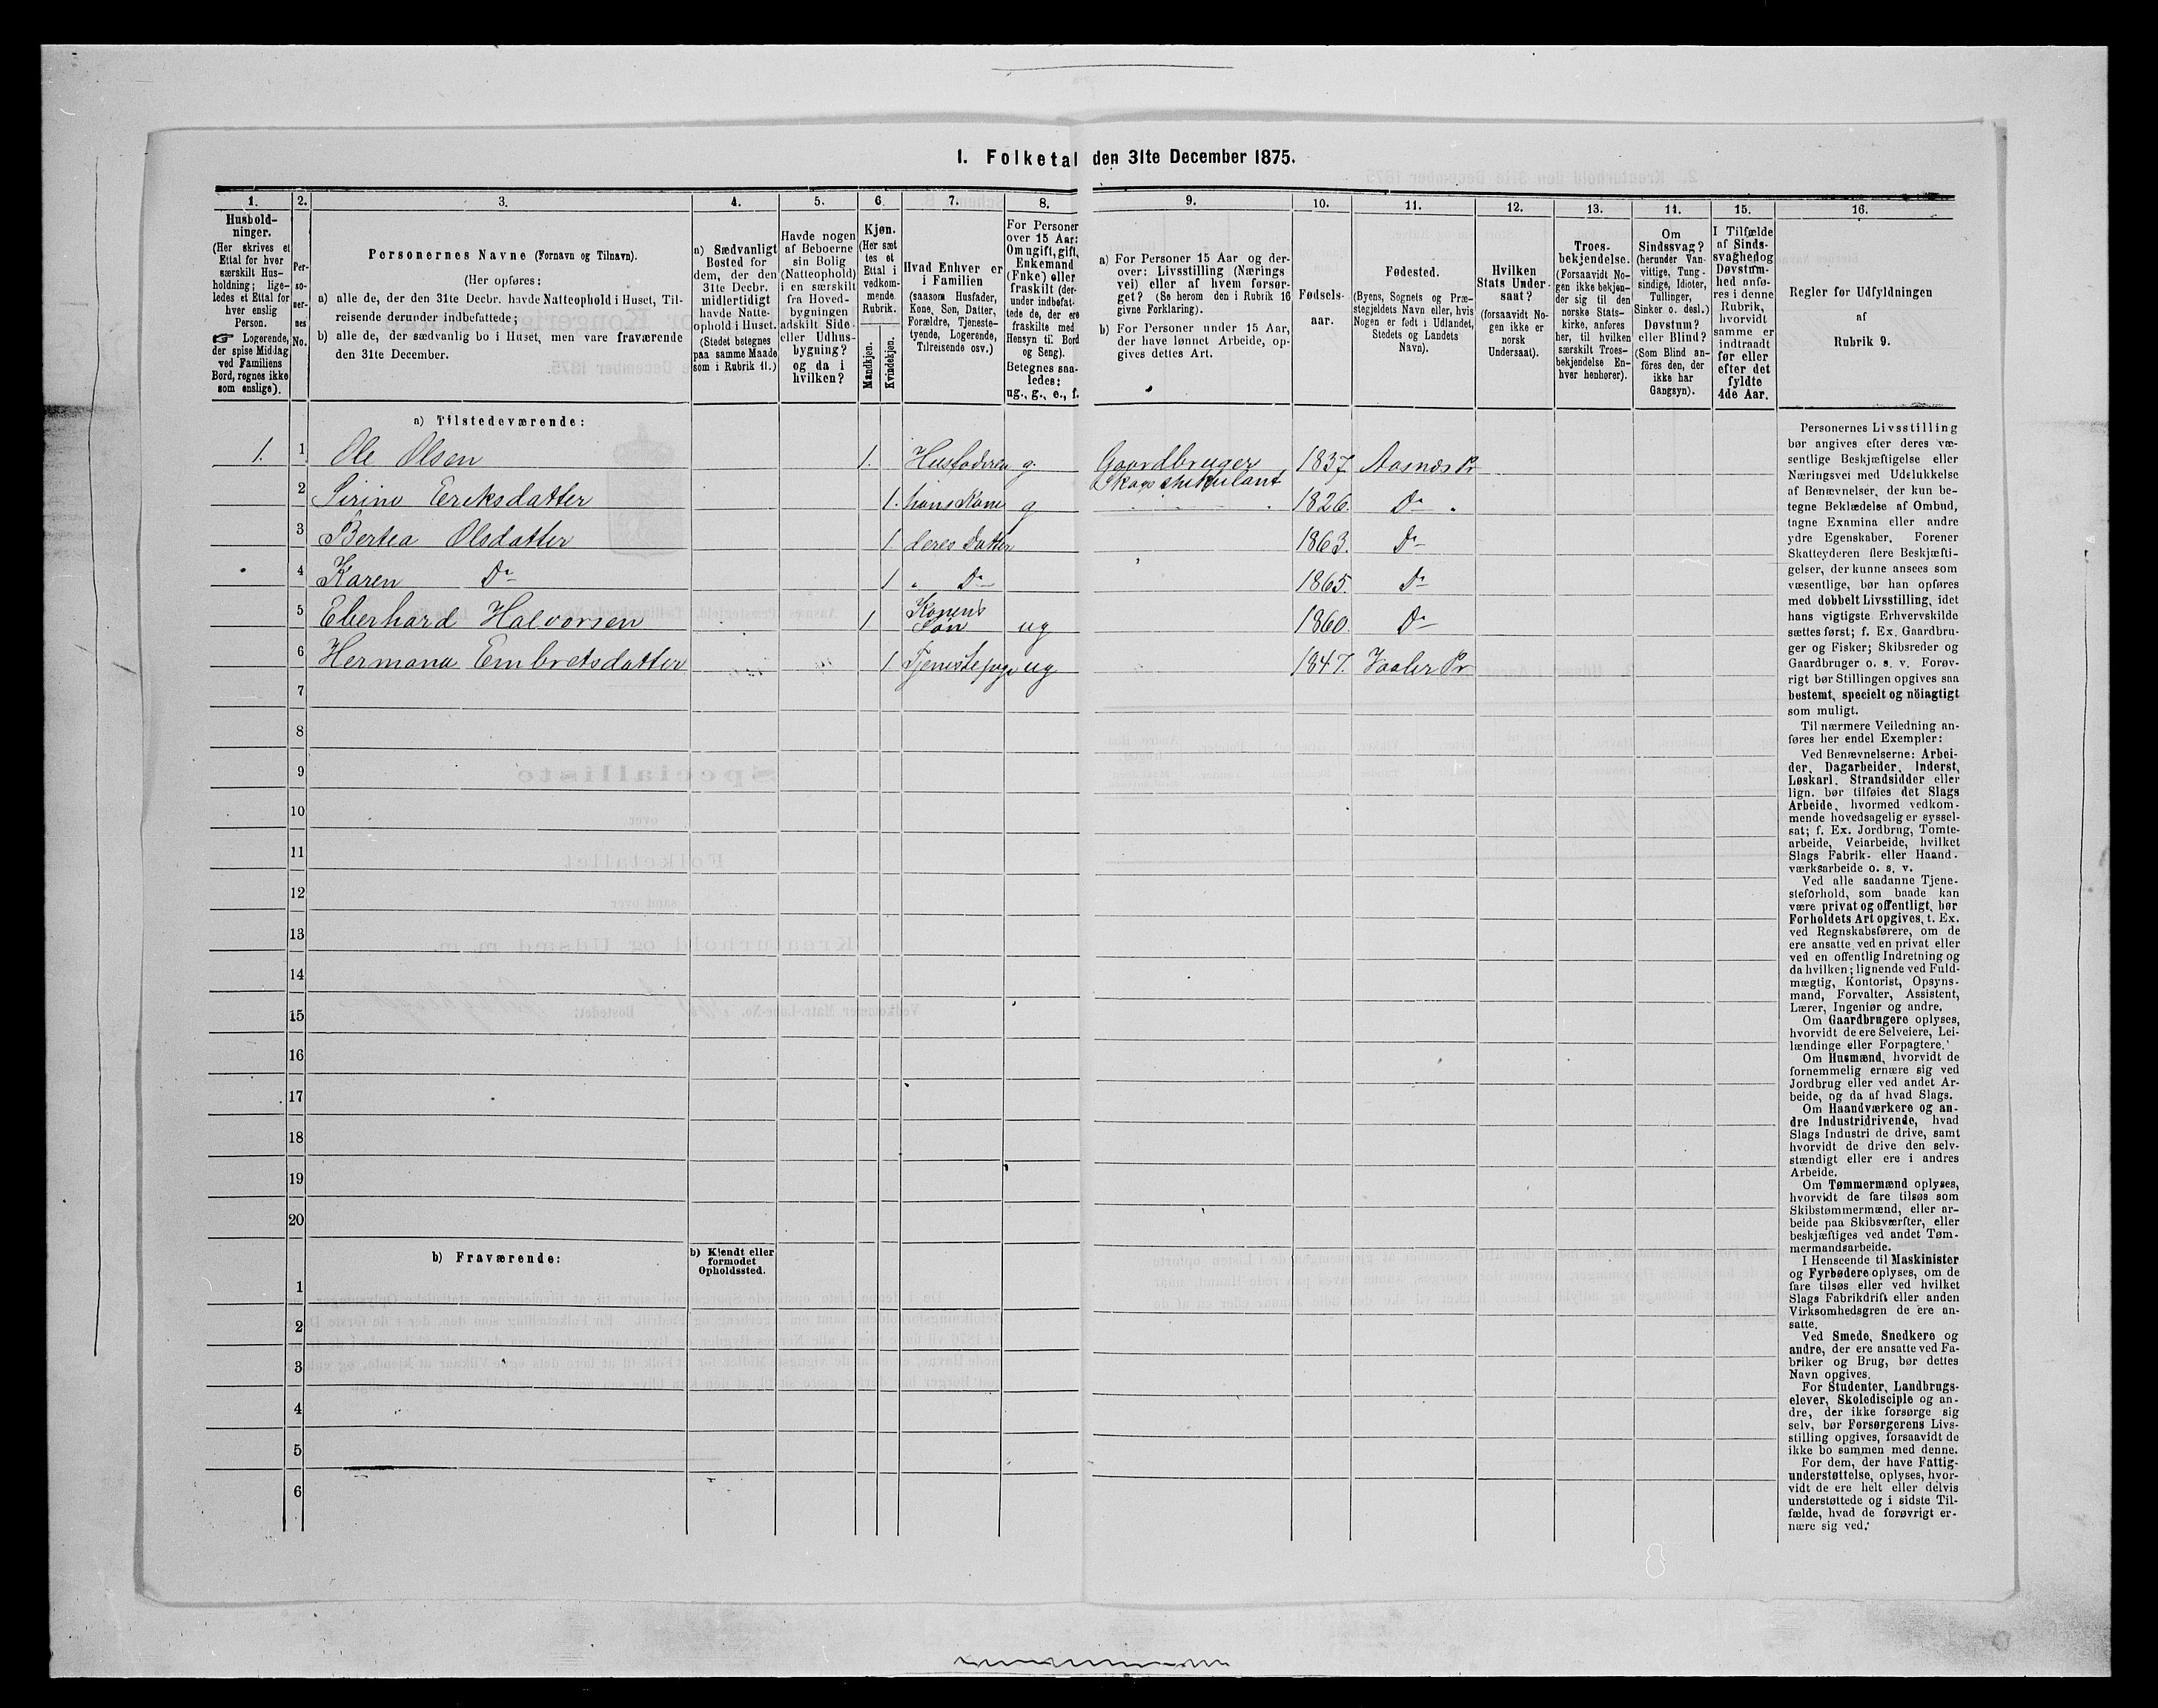 1. Folketal den 31te December 1875.
1. 2. 3. 4. 5. 6. 7. 8. 9. 10. 11. 12. 13. 14. 15. 16.
Hushold-
ninger.
(Her skrives et
Ettal for hver
særskilt Hus-
holdning; lige-
ledes et Ettal for
hver enslig
Person.
☞ Logerende,
der spise Middag
ved Familiens
Bord, regnes ikke
som enslige).
Per-
so-
ner-
nes
No.
Personernes Navne (Fornavn og Tilnavn).
(Her opføres:
a) alle de, der den 31te Decbr. havde Natteophold i Huset, Til-
reisende derunder indbefattede;
b) alle de, der sædvanlig bo i Huset, men vare fraværende
den 31te December.
a) Sædvanligt
Bosted for
dem, der den
31te Decbr.
midlertidigt
havde Natte-
ophold i Huset.
(Stedet betegnes
paa samme Maade
som i Rubrik 11.)
Havde nogen
af Beboerne
sin Bolig
(Natteophold)
i en særskilt
fra Hoved-
bygningen
adskilt Side-
eller Udhus-
bygning?
og da i
hvilken?
Kjøn.
(Her sæt
tes et
Ettal i
vedkom-
mende
Rubrik.
Mandkjøn.
Kvindekjøn.
Hvad Enhver er
i Familien
(saasom Husfader,
Kone, Søn, Datter,
Forældre, Tjeneste-
tyende, Logerende,
Tilreisende osv.)
For Personer
over 15 Aar:
Om ugift, gift,
Enkemand
(Enke) eller
fraskilt (der-
under indbefat-
tede de, der ere
fraskilte med
Hensyn til Bord
og Seng).
Betegnes saa-
ledes:
ug., g., e., f.
a) For Personer 15 Aar og der-
over: Livsstilling (Nærings
vei) eller af hvem forsør-
get? (Se herom den i Rubrik 16
givne Forklaring).
b) For Personer under 15 Aar,
der have lønnet Arbeide, op-
gives dettes Art.
Fødsels-
aar.
Fødested.
(Byens, Sognets og Præ-
stegjeldets Navn eller, hvis
Nogen er født i Udlandet,
Stedets og Landets
Navn).
Hvilken
Stats Under-
saat?
(forsaavidt No-
gen ikke er
norsk
Undersaat).
Troes-
bekjendelse.
(Forsaavidt No-
gen ikke bekjen-
der sig til den
norske Stats-
kirke, anføres
her, til hvilken
særskilt Troes-
bekjendelse En-
hver henhører).
Om
Sindssvag?
(herunder Van-
vittige, Tung-
sindige, Idioter,
Tullinger,
Sinker o. desl.)
Døvstum?
eller Blind?
(Som Blind an-
føres den, der
ikke har
Gangsyn).
I Tilfælde
af Sinds-
svaghed og
Døvstum-
hed anfø-
res i denne
Rubrik,
hvorvidt
samme er
indtraadt
før eller
efter det
fyldte
4de Aar.
Regler for Udfyldningen
af
Rubrik 9.
a) Tilstedeværende:
1. 1 Ole Olsen 1. Husfaderen g. Gaardbruger, Skogspekulant 1837. Aasnæs Pr
2 Sirine Eriksdatter 1. hans Kone g 1826. Do
3 Bertea Olsdatter 1. deres Datter 1863. Do
4 Karen Do 1 " Do 1865. Do
5 Eberhard Halvorsen 1. Konens Søn ug 1860. Do
6 Hermana Embretsdatter 1 Tjenestepige ug 1847. Vaaler Pr
7
8
9
10
11
12
13
14
15
16
17
18
19
20
b) Fraværende:
b) Kjendt eller
formodet
Opholdssted.
1
2
3
4
5
6
Personernes Livsstilling
bør angives efter deres væ-
sentlige Beskjæftigelse eller
Næringsvei med Udelukkelse
af Benævnelser, der kun be-
tegne Beklædelse af Ombud,
tagne Examina eller andre
ydre Egenskaber. Forener
Skatteyderen flere Beskjæfti-
gelser, der kunne ansees som
væsentlige, bør han opføres
med dobbelt Livsstilling, idet
hans vigtigste Erhvervskilde
sættes først; f. Ex. Gaardbru-
ger og Fisker; Skibsreder og
Gaardbruger o. s. v. Forøv-
rigt bør Stillingen opgives saa
bestemt, specielt og nöiagtigt
som muligt.
Til nærmere Veiledning an-
føres her endel Exempler:
Ved Benævnelserne: Arbei-
der, Dagarbeider, Inderst,
Løskarl, Strandsidder eller
lign. bør tilføies det Slags
Arbeide, hvormed vedkom-
mende hovedsagelig er syssel-
sat; f. Ex. Jordbrug, Tomte-
arbeide, Veiarbeide, hvilket
Slags Fabrik- eller Haand-
værksarbeide o. s. v.
Ved alle saadanne Tjene-
steforhold, som baade kan
være privat og offentligt, bør
Forholdets Art opgives, t. Ex.
ved Regnskabsførere, om de
ere ansatte ved en privat eller
ved en offentlig Indretning og
da hvilken; lignende ved Fuld-
mægtig, Kontorist, Opsyns-
mand, Forvalter, Assistent,
Lærer, Ingeniør og andre.
Om Gaardbrugere oplyses,
hvorvidt de ere Selveiere, Lei-
lændinge eller Forpagtere.
Om Husmænd, hvorvidt de
fornemmelig ernære sig ved
Jordbrug eller ved andet Ar-
beide, og da af hvad Slags.
Om Haandværkere og an-
dre Industridrivende, hvad
Slags Industri de drive, samt
hvorvidt de drive den selv-
stændigt eller ere i andres
Arbeide.
Om Tømmermænd oplyses,
hvorvidt de fare tilsøs som
Skibstømmermænd, eller ar-
beide paa Skibsværfter, eller
beskjæftiges ved andet Tøm-
mermandsarbeide.
I Henseende til Maskinister
og Fyrbødere oplyses, om de
fare tilsøs eller ved hvilket
Slags Fabrikdrift eller anden
Virksomhedsgren de ere an-
satte.
Ved Smede, Snedkere og
andre, der ere ansatte ved Fa-
briker og Brug, bør dettes
Navn opgives.
For Studenter, Landbrugs-
elever, Skoledisciple og an-
dre, der ikke forsørge sig
selv, bør Forsørgerens Livs-
stilling opgives, forsaavidt de
ikke bo sammen med denne.
For dem, der have Fattig-
understøttelse, oplyses, hvor-
vidt de ere helt eller delvis
understøttede og i sidste Til-
fælde, hvad de forøvrigt er-
nære sig ved.